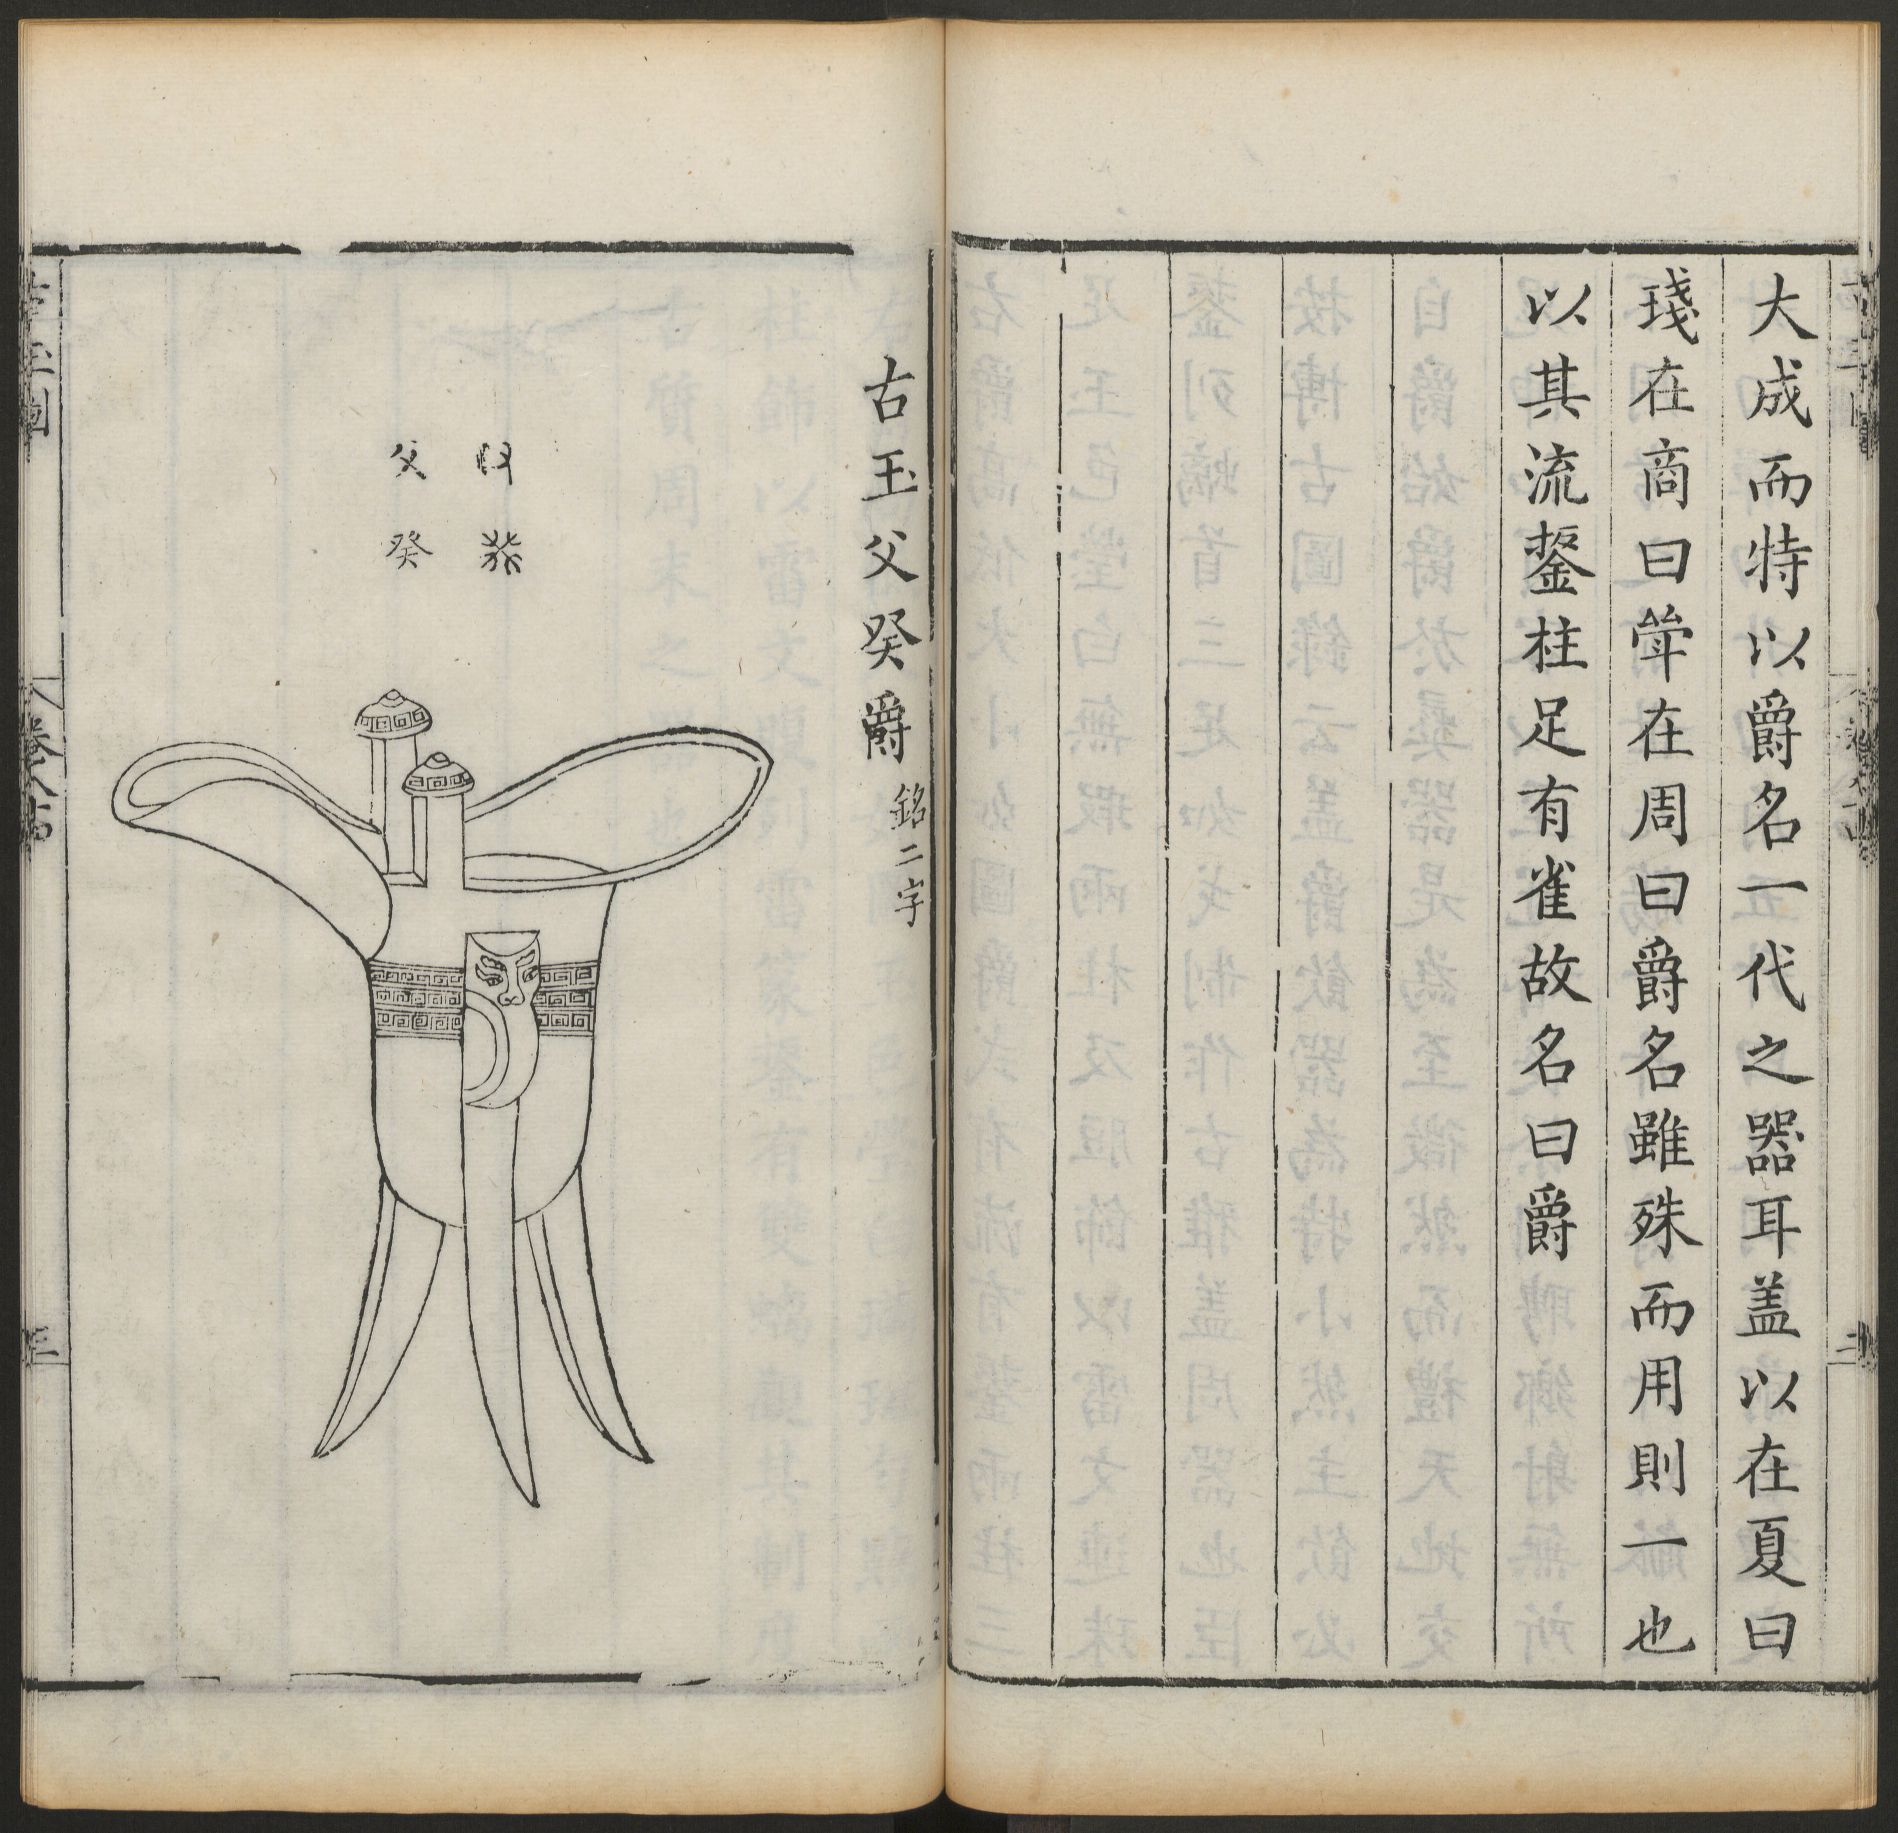 大成而特以爵名一代之器耳盖以在夏曰
琖在商曰斚在周曰爵名雖殊而用則一也
以其流鋬柱足有雀故名曰爵
二
古玉父癸爵銘二字
父癸
三